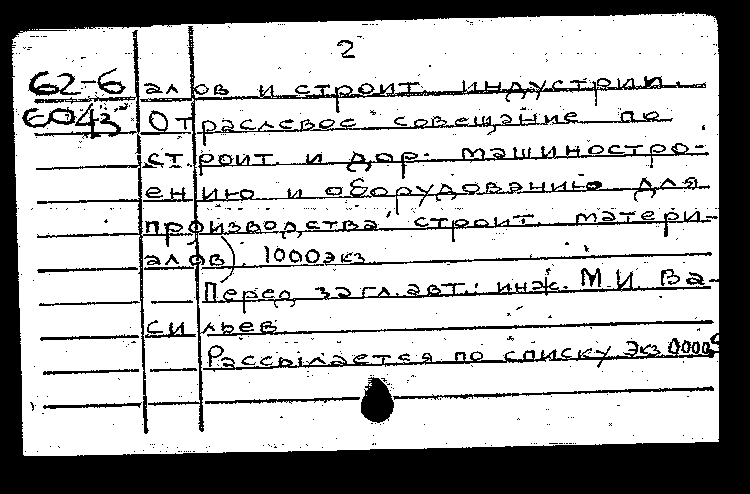 2
62-6 алов и строит. индустрии.
6043 Отраслевое совещание по
строит. и дор. машиностро-
ению и оборудованию для
производства строит. матери-
алов). 1000экз.
Перед загл. авт.: инж. М.И. Ва-
сильев
Рассылается по списку Экз 0000